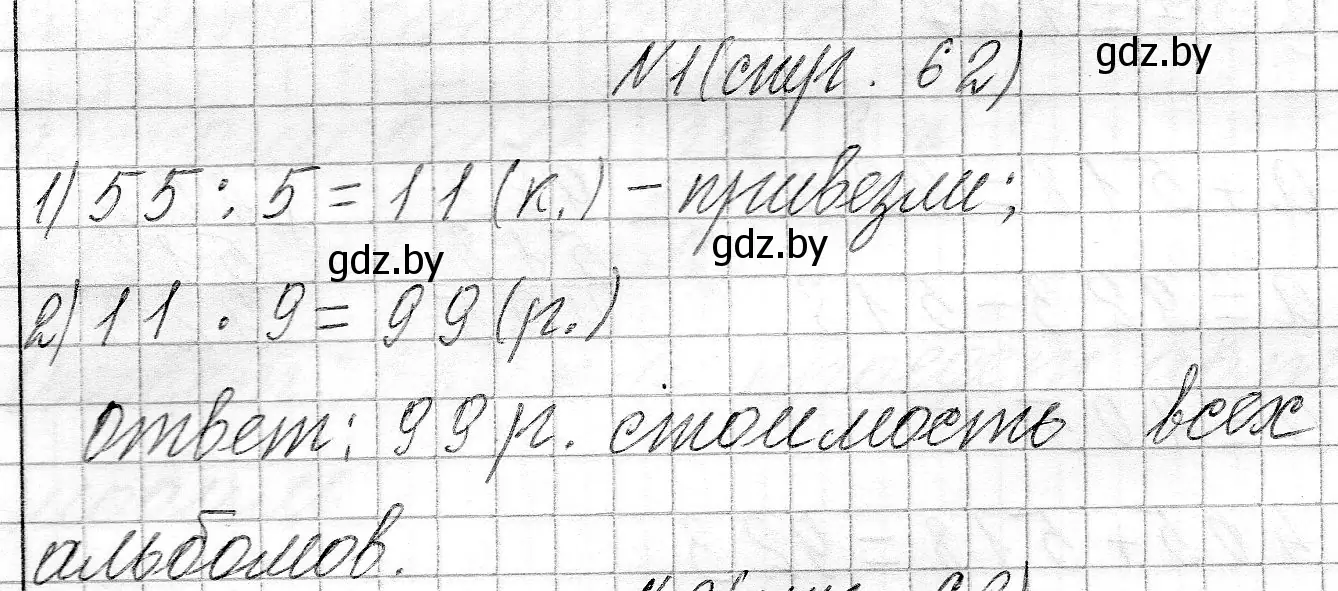 №1 (стр. 62) gdz.by
1) 55 : 5 = 11 (к.) – привезли;
gdz.by gdz.by
2) 11 · 9 = 99 (р.)
ответ: 99 р. стоимость всех
альбомов.